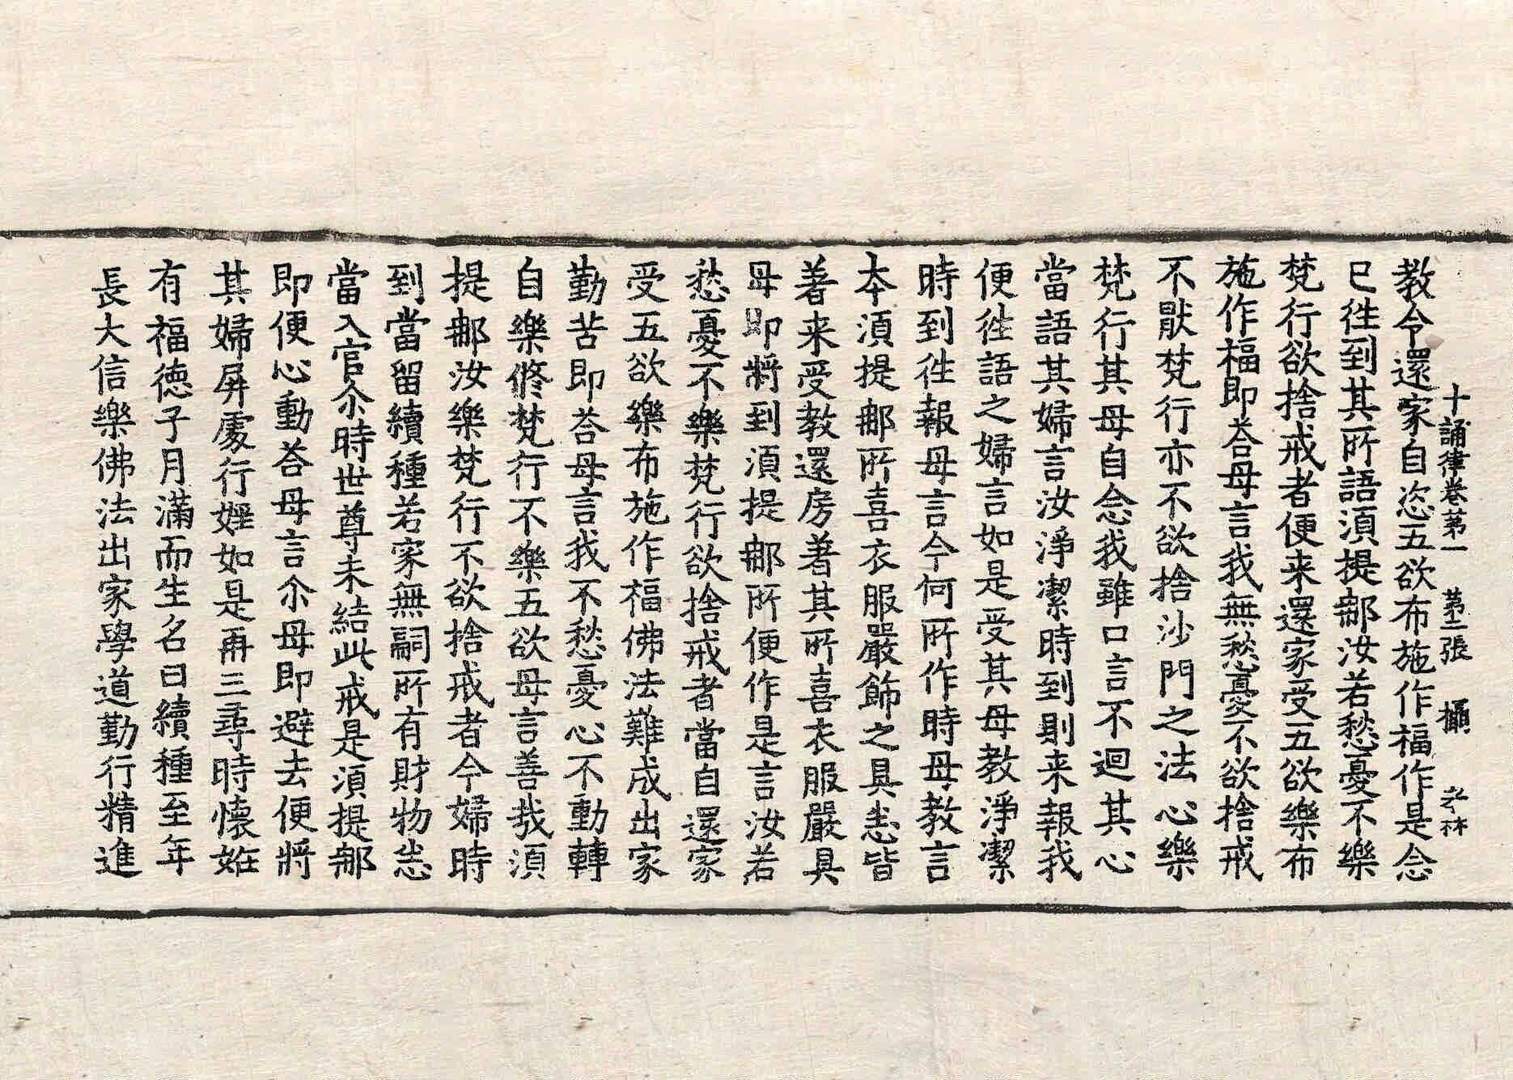 十誦律卷第一 第二張 攝 老林
教令還家自恣五欲布施作福作是念
已徃到其所語湏提䣌汝若愁憂不樂
梵行欲捨戒者便来還家受五欲樂布
施作福即荅母言我無愁憂不欲捨戒
不猒梵行亦不欲捨沙門之法心樂
梵行其母自念我雖口言不迴其心
當語其婦言汝淨潔時到則来報我
便徃語之婦言如是受其母教淨潔
時到徃報母言今何所作時母教言
本湏提䣌所喜衣服嚴飾之具悉皆
著来受教還房著其所喜衣服嚴具
母即將到湏提䣌所便作是言汝若
愁憂不樂梵行欲捨戒者當自還家
受五欲樂布施作福佛法難成出家
勤苦即荅母言我不愁憂心不動轉
自樂脩梵行不樂五欲母言善哉湏
提䣌汝樂梵行不欲捨戒者今婦時
到當留續種若家無嗣所有財物悉
當入官尒時世尊未結此戒是湏提䣌
即便心動荅母言尒母即避去便將
其婦屏處行婬如是再三尋時懷姙
有福德子月滿而生名曰續種至年
長大信樂佛法出家學道勤行精進